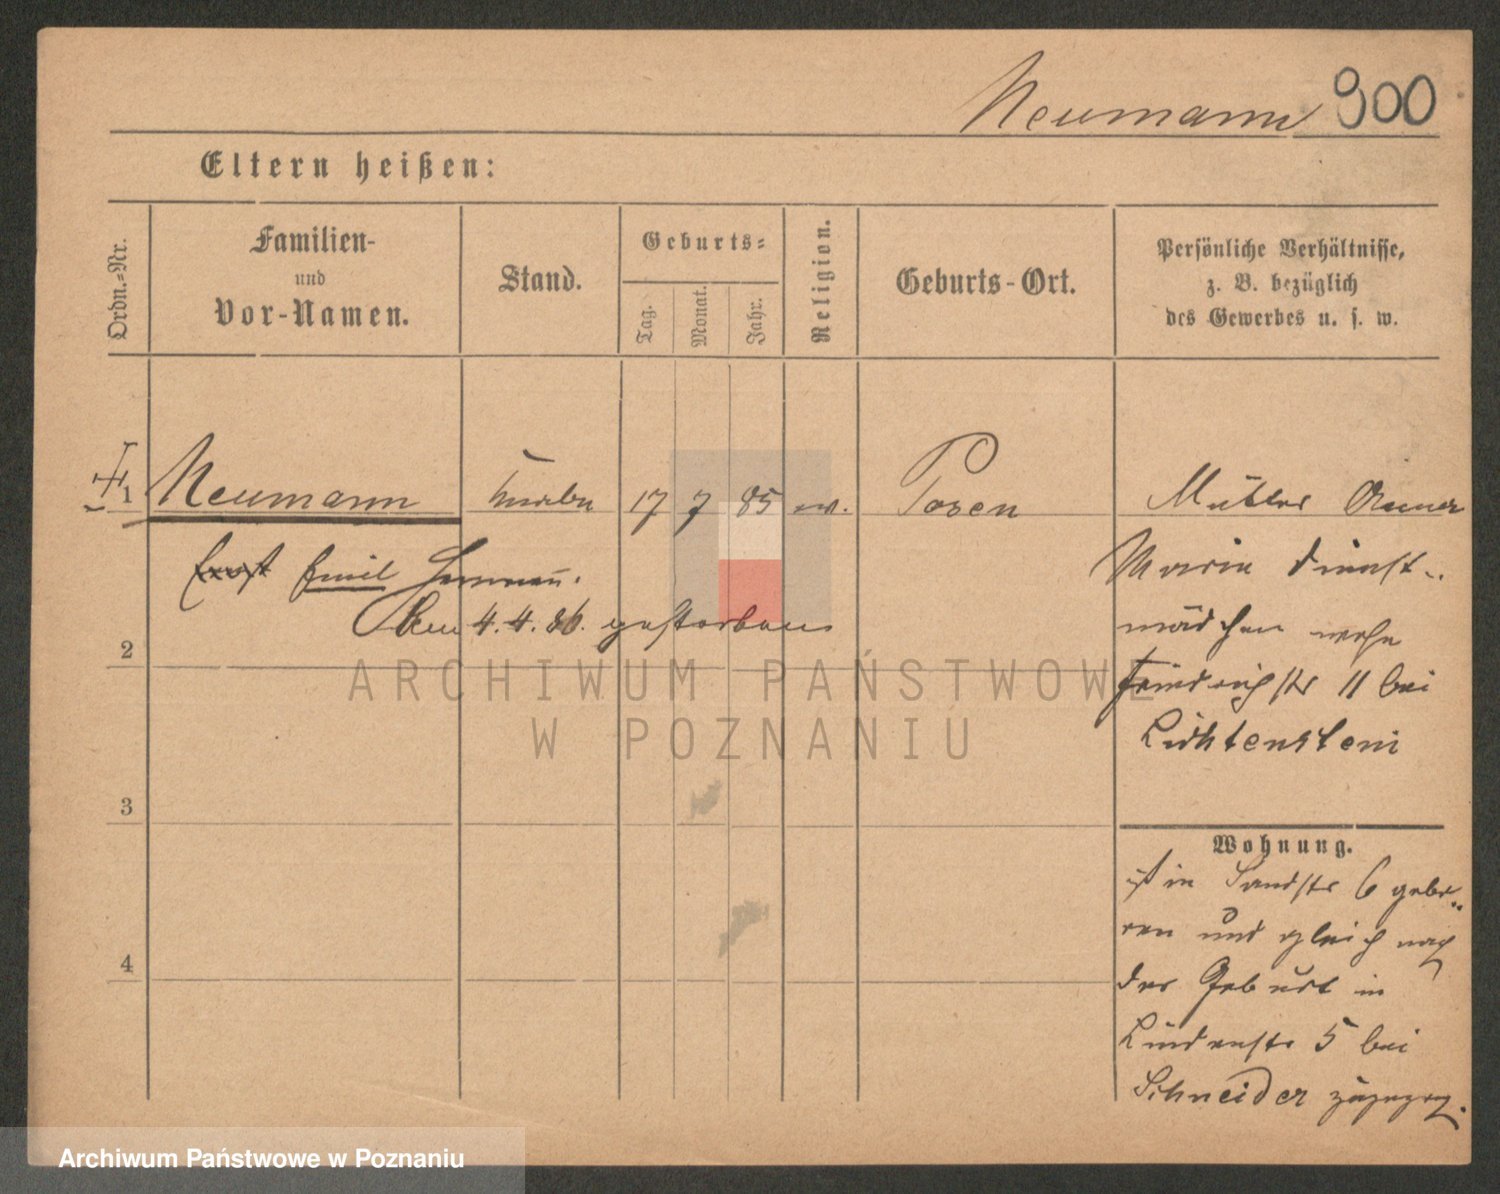 Neumann 900
Eltern heißen:
Ordn.-Nr.
Familien-
und
Vor-Namen.
Stand.
Geburts-
Tag.
Monat.
Jahr.
Religion.
Geburts-Ort.
Persönliche Verhältnisse,
z. B. bezüglich
des Gewerbes u. s. w.
1 Neumann Knabe 17 7 85 ev. Posen Mutter
Ernst Emil Hermann.
Marie Dienst-
Am 4.4.86. gestorben
mädchen wohn
2
Friedrichstr 11 bei
Lichtenstein
3
Wohnung.
ist in Sandstr 6 gebo-
ren und gleich nach
4
der Geburt in
Lindenstr 5 bei
Schneider zugezog.
ARCHIWUM PAŃSTWOWE
W POZNANIU
Archiwum Państwowe w Poznaniu